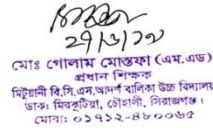 মোঃ গোলাম মোস্তফা (এম.এড)
প্রধান শিক্ষক
মিটুয়ানী বি.সি.এস.আদর্শ বালিকা উচ্চ বিদ্যালয়
ডাক: মিরকুটিয়া, চৌহালী, সিরাজগঞ্জ।
মোবা: ০১৭১২-৪৮০০৬৫